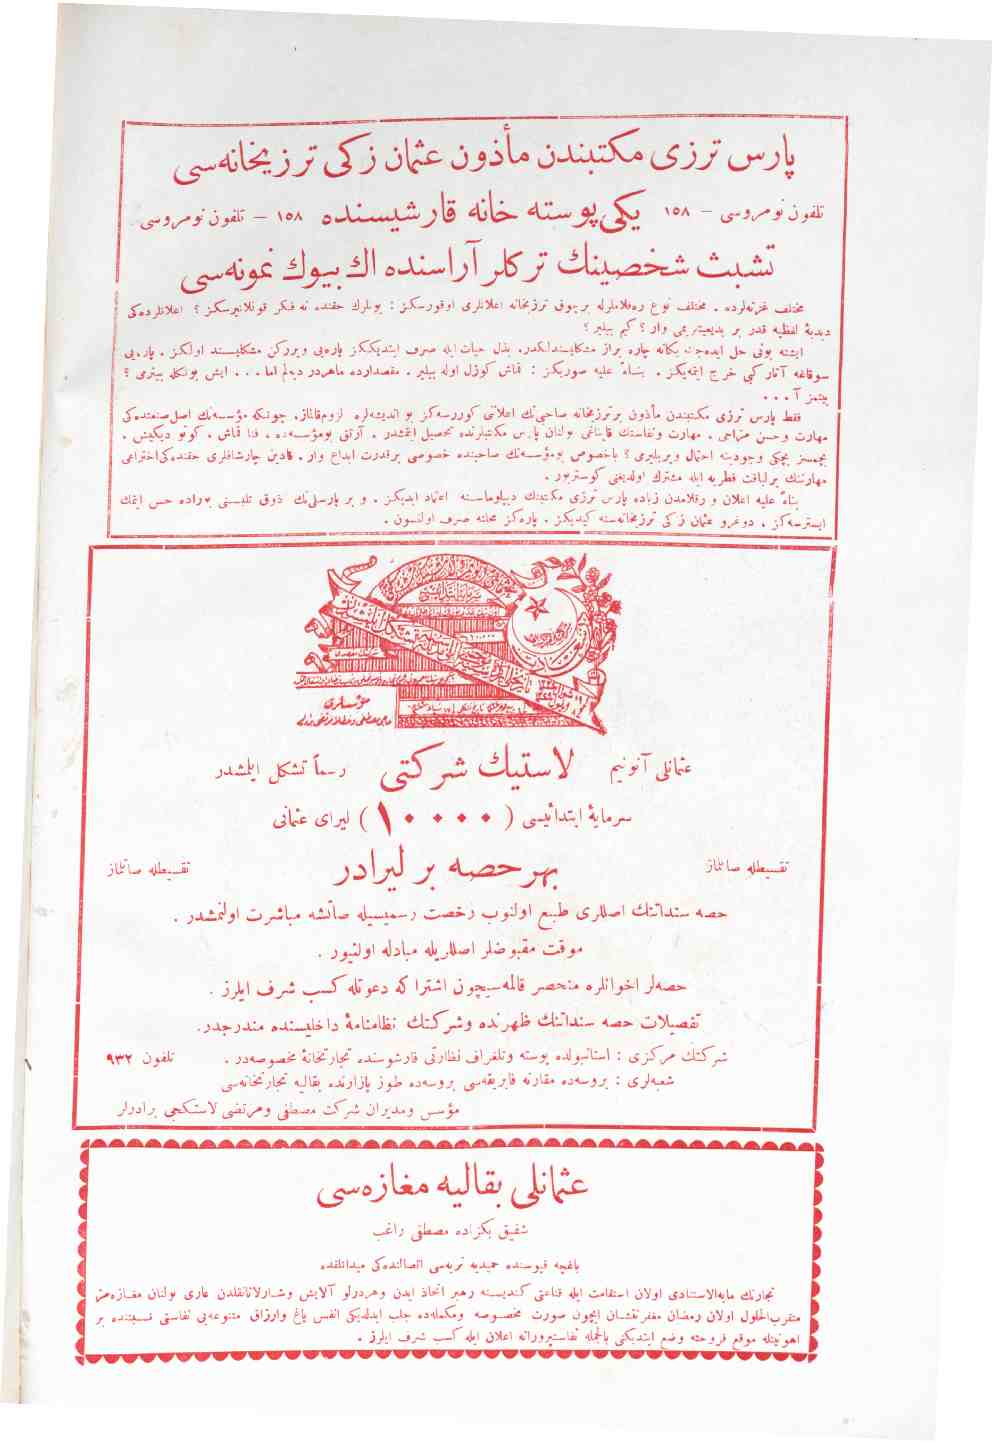 پارس ترزی مكتبندن مأذون عثمان زكی ترزیخانه‌سی
تلفون نومروسی — ١٥٨ یكی پوسته خانه قارشیسنده ١٥٨ — تلفون نومروسی
تشبث شخصینك تركلر آراسنده اك بیوك نمونه‌سی
مختلف غزته‌لرده . مختلف نوع ره‌قلاملرله بر چوق ترزیخانه اعلانلری اوقورسكز : بونلرك حقنده نه فكر قوللانیرسكز ؟ اعلانلرده‌كی
دبدبۀ لفظیه قدر بر بدیعیتلری وار ؟ كیم بیلیر ؟
ایشته بونی حل ایده‌جك یكانه چاره براز مشكلپسندلكدر. بذل حیات ایله صرف ایتدیككز پاره‌یی ویرركن مشكلپسند اولكز . پاره‌یی
سوقاغه آتار كبی خرج ایتمه‌یكز . بناءً علیه صوریكز : قماش كوزل اوله بیلیر . مقصدارده ماهردر دیهلم اما ... ایش بونكله بیترمی ؟
بیتمز آ ...
فقط پارس ترزی مكتبندن مأذون بر ترزیخانه صاحبی‌نك اعلاننی كوررسه‌كز بو اندیشه‌لره لزوم قالماز. چونكه مؤسسه‌نك اصل صنعتده‌كی
مهارت وحسن مزاجی . مهارت ونفاستك قایناغی بولنان پارس مكتبلرنده تحصیل ایتمشدر . آرتق بومؤسسه‌ده ، فنا قماش . كوتو دیكیش .
بچمسز بچكی وجودینه احتمال ویریلیرمی ؟ باخصوص بومؤسسه‌نك صاحبنده خصوصی بر قدرت ابداع وار. قادین چارشافلری حقنده‌كی اختراعی
مهارتنك بر لیاقت فطریه ایله مشترك اولدیغنی كوستریور .
بناءً علیه اعلان و رقلامدن زیاده پارس ترزی مكتبنك دیپلوماسنه اعتماد ایدیكز . و بر پارسلی‌نك ذوق تلبسنی بوراده حس ایتمك
ایسترسه‌كز . دوغرو عثمان زكی ترزیخانه‌سنه كیدیكز . پاره‌كز محلنه صرف اولنسون .
مؤسسلری
عثمانلی آنونیم لاستیك شركتی رسماً تشكل ایلمشدر
سرمایۀ ابتدائیسی (١٠٠٠٠) لیرای عثمانی
تقسیطله صاتلماز بهر حصه بر لیرادر تقسیطله صاتلماز
حصه سنداتنك اصللری طبع اولنوب رخصت رسمیسیله صاتشه مباشرت اولنمشدر .
موقت مقبوضلر اصللریله مبادله اولنیور .
حصه‌لر اخوانلره منحصر قالمه‌سیچون اشتراكه دعوتله كسب شرف ایلرز .
تفصیلات حصه سنداتنك ظهرنده وشركتك نظامنامۀ داخلیسنده مندرجدر.
شركتك مركزی : استانبولده پوسته وتلغراف نظارتی قارشوسنده تجارتخانۀ مخصوصه‌در . تلفون ٩٣٢
شعبه‌لری : بروسه‌ده مقارنه فابریقه‌سی بروسه‌ده طوز پازارنده بقالیه تجارتخانه‌سی
مؤسس ومدیران شركت مصطفی ومرتضی لاستكجی برادرلر
عثمانلی بقالیه مغازه‌سی
شفیق بكزاده مصطفی راغب
باغچه قپوسنده حمیدیه تربه‌سی اتصالنده‌كی میدانلقده
تجارتك مابه‌الاستنادی اولان استقامت ایله قناعتی كندیسنه رهبر اتخاذ ایدن وهردرلو آلایش وشارلاتانلقدن عاری بولنان مغازه‌مز
متقرب‌الحلول اولان رمضان مغفرتنشان ایچون صورت مخصوصه ومكمله‌ده جلب ایدله‌یكی انفس یاغ وارزاق متنوعه‌یی نفاستی نسبتنده بر
اهونیتله موقع فروخته وضع ایتدیكنی بالجمله نفاستپرورانه اعلان ایله كسب شرف ایلرز .